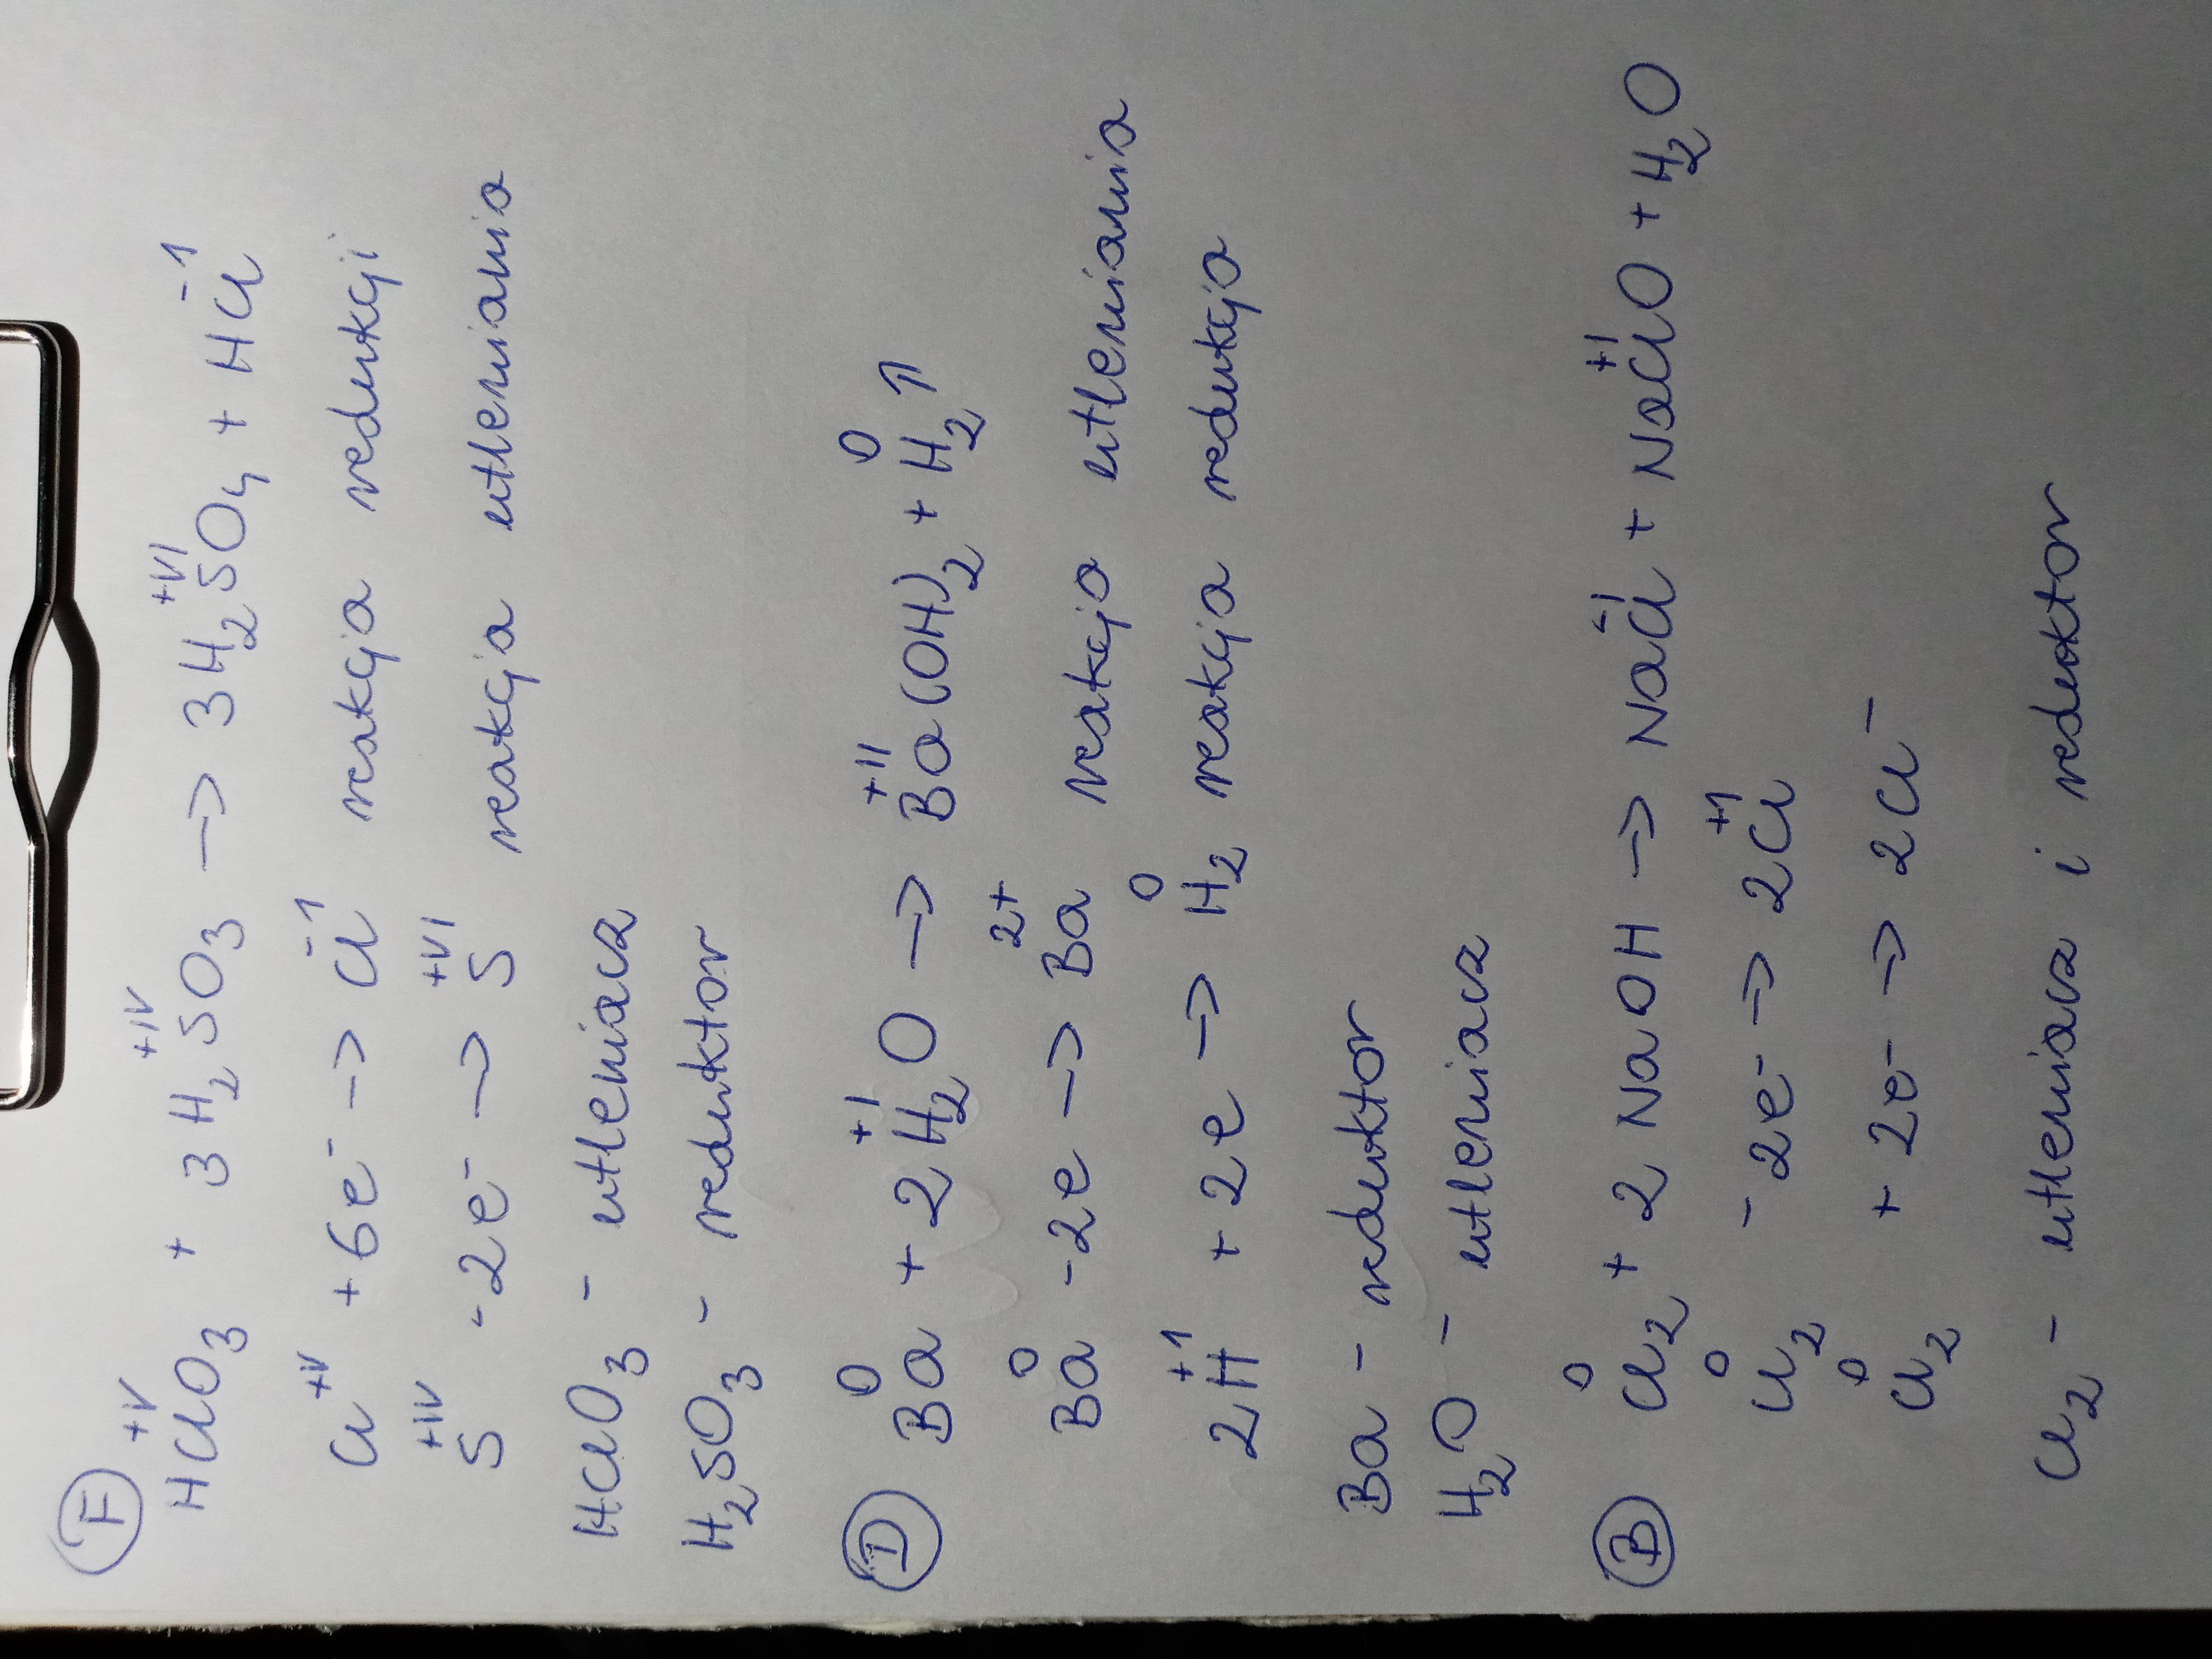 F
HClO₃ + 3H₂SO₃ → 3H₂SO₄ + HCl
+V +IV +VI -1
Cl +6e⁻ → Cl reakcja redukcji
+IV -1
S -2e⁻ → S reakcja utleniania
+IV +VI
HClO₃ - utleniacz
H₂SO₃ - reduktor
D
Ba + 2H₂O → Ba(OH)₂ + H₂↑
0 +I +II 0
Ba -2e → Ba reakcja utleniania
0 2+
2H +2e → H₂ reakcja redukcja
+1 0
Ba - reduktor
H₂O - utleniacz
B
Cl₂ + 2NaOH → NaCl + NaClO + H₂O
0 -1 +1
Cl₂ -2e⁻ → 2Cl
0 +1
Cl₂ +2e⁻ → 2Cl⁻
0
Cl₂ - utleniacz i reduktor